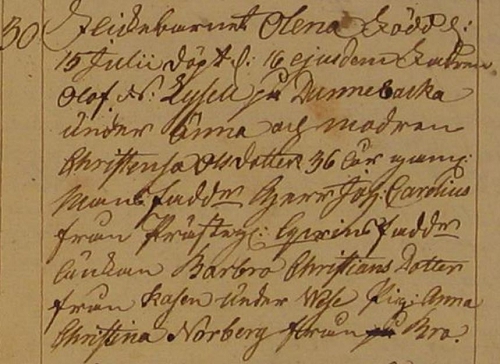 30 Flickebarnet Olena Född d:
15 Julii Döpt d: 16 ejusdem Fadren
Olof N: Lysell på Dunnebacka
under Änna och Modren
Christensa Ols Dotter 36 år gam:
Mans fadd Herr Joh: Carolius
från Präste: Qwins fadd
änkan Barbro Christians Dotter
från Kasen under Wese Pig: Anna
Christina Norberg från Bro.